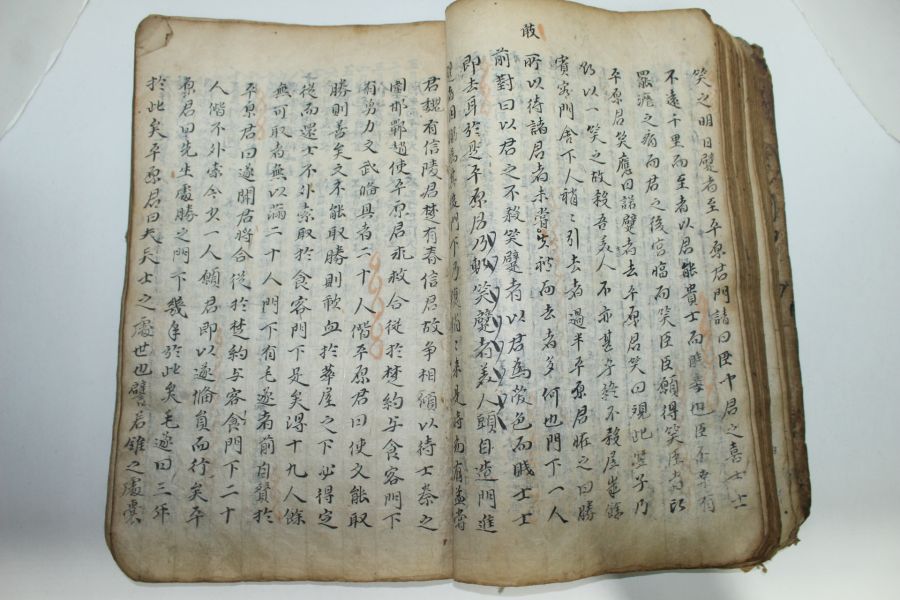 敢
笑之明日躄者至平原君門請曰臣聞君之喜士士
不遠千里而至者以君能貴士而賤妾也臣不幸有
罷癃之病而君之後宮臨而笑臣臣願得笑臣者頭
平原君笑應曰諾躄者去平原君笑曰觀此豎子乃
欲以一笑之故殺吾美人不亦甚乎終不殺居歲餘
賓客門舍下人稍〻引去者過半平原君怪之曰勝
所以待諸君者未嘗失禮而去者多何也門下一人
前對曰以君之不殺笑躄者以君為愛色而賤士士
即去耳於是平原君乃斬笑躄者美人頭自造門進
躄者因謝焉其後門下乃復稍〻來是時齊有孟嘗
君魏有信陵君楚有春信君故争相傾以待士秦之
圍邯鄲趙使平原君求救合從於楚約与食客門下
有勇力文武俻具者二十人偕平原君曰使文能取
勝則善矣文不能取勝則歃血於華屋之下必得定
從而還士不外索取於食客門下足矣淂十九人餘
無可取者無以滿二十人門下有毛遂者前自贊於
平原君曰遂聞君將合從於楚約与客食門下二十
人偕不外索今少一人願君即以遂俻員而行矣平
原君曰先生處勝之門下幾年於此矣毛遂曰三年
於此矣平原君曰夫賢士之處世也譬若錐之處囊